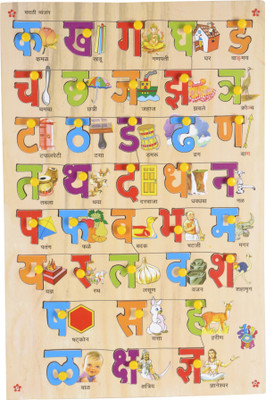 मराठी व्यंजन
क ख ग घ ङ
कमळ खडू गणपती घर
च छ ज झ ञ
चमचा छत्री जहाज झाड
ट ठ ड ढ ण
ठसा डमरू ढग बाण
त थ द ध न
तबला थवा दरवाजा धनुष्य नळ
प फ ब भ म
पतंग फळे बदक भटजी मगर
य र ल व श
यज्ञ रथ लसूण वजन शहामृग
ष स ह
षटकोन ससा हरीण
ळ क्ष ज्ञ
बाळ क्षत्रिय ज्ञानेश्वर